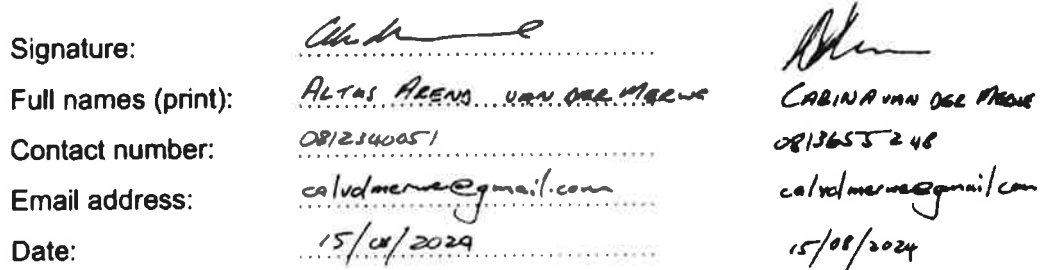 Signature:
Full names (print): ALTUS AREND VAN DER MERWE CARINA VAN DER MERWE
Contact number: 0812340051 0813655248
Email address: calvdmerwe@gmail.com calvdmerwe@gmail.com
Date: 15/08/2024 15/08/2024